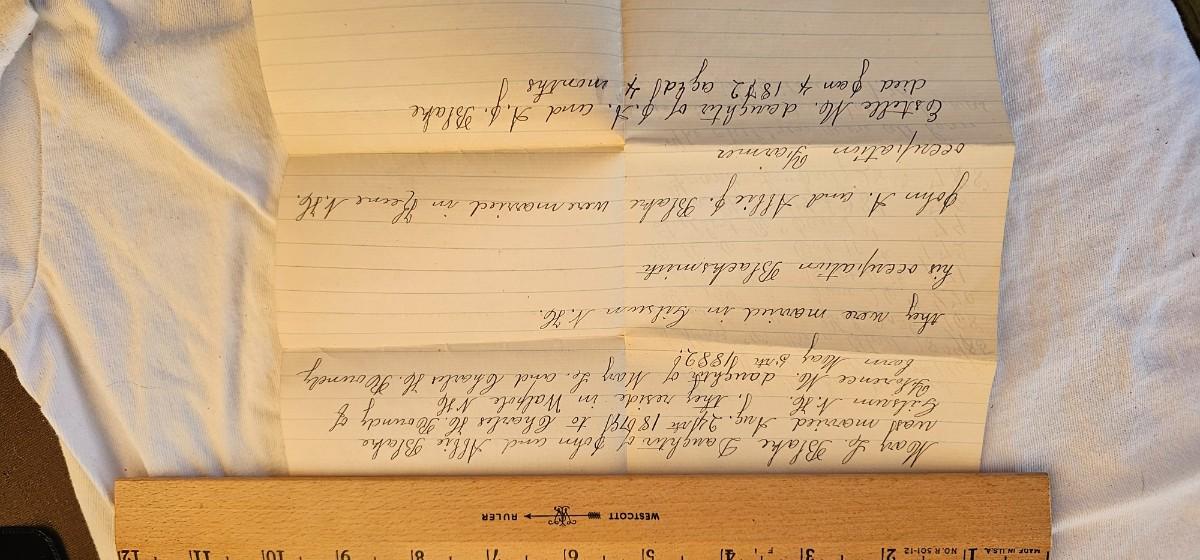 MADE IN U.S.A.
NO. R 501-12
1 2 3 4 5 6 7 8 9 10 11 12
WESTCOTT RULER
Mary L. Blake Daughter of John and Abbie Blake
was married Aug. 24th to Charles H. Roundy of
Gilsum N. H. they reside in Walpole N H
Florence M. daughter of Mary L. and Charles H. Roundy
born May 5th 1882.
they were married in Gilsum N. H.
his occupation Blacksmith
John A. and Abbie J. Blake were married in Keene N. H.
occupation Farmer
Estelle M. daughter of J. A. and A. J. Blake
died Jan 4 1872 aged 4 months